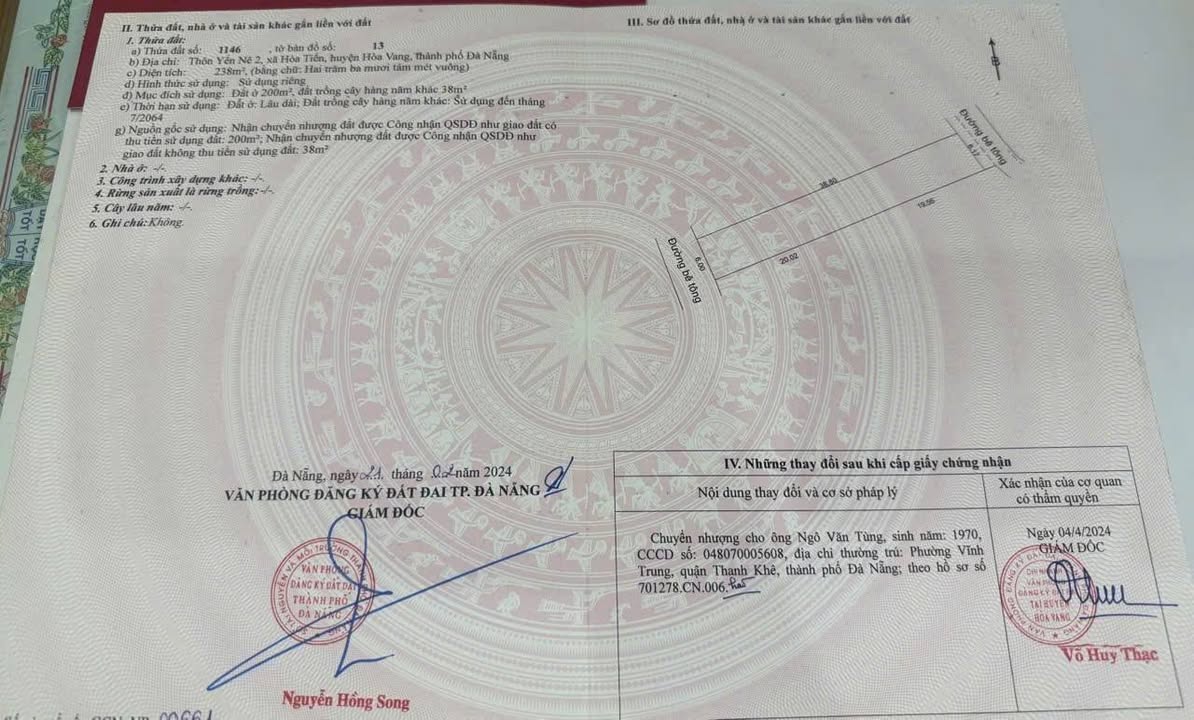 II. Thửa đất, nhà ở và tài sản khác gắn liền với đất
1. Thửa đất:
a) Thửa đất số: 1146 , tờ bản đồ số: 13
b) Địa chỉ: Thôn Yến Nê 2, xã Hòa Tiến, huyện Hòa Vang, thành phố Đà Nẵng
c) Diện tích: 238m², (bằng chữ: Hai trăm ba mươi tám mét vuông)
d) Hình thức sử dụng: Sử dụng riêng
đ) Mục đích sử dụng: Đất ở 200m², đất trồng cây hàng năm khác 38m²
e) Thời hạn sử dụng: Đất ở: Lâu dài; Đất trồng cây hàng năm khác: Sử dụng đến tháng
7/2064
g) Nguồn gốc sử dụng: Nhận chuyển nhượng đất được Công nhận QSDĐ như giao đất có
thu tiền sử dụng đất: 200m²; Nhận chuyển nhượng đất được Công nhận QSDĐ như
giao đất không thu tiền sử dụng đất: 38m²
2. Nhà ở: -/-.
3. Công trình xây dựng khác: -/-.
4. Rừng sản xuất là rừng trồng: -/-.
5. Cây lâu năm: -/-.
6. Ghi chú: Không.
III. Sơ đồ thửa đất, nhà ở và tài sản khác gắn liền với đất
B
Đường bê tông
6.17
38.80
19.56
20.02
6.00
Đường bê tông
Đà Nẵng, ngày 21 tháng 02 năm 2024
VĂN PHÒNG ĐĂNG KÝ ĐẤT ĐAI TP. ĐÀ NẴNG
GIÁM ĐỐC
VĂN PHÒNG
ĐĂNG KÝ ĐẤT ĐAI
THÀNH PHỐ
ĐÀ NẴNG
Nguyễn Hồng Song
IV. Những thay đổi sau khi cấp giấy chứng nhận
Nội dung thay đổi và cơ sở pháp lý
Xác nhận của cơ quan
có thẩm quyền
Chuyển nhượng cho ông Ngô Văn Tùng, sinh năm: 1970,
CCCD số: 048070005608, địa chỉ thường trú: Phường Vĩnh
Trung, quận Thanh Khê, thành phố Đà Nẵng; theo hồ sơ số
701278.CN.006.
Ngày 04/4/2024
GIÁM ĐỐC
CHI NHÁNH
VĂN PHÒNG
ĐĂNG KÝ ĐẤT ĐAI
TẠI HUYỆN
HÒA VANG
Võ Huy Thạc